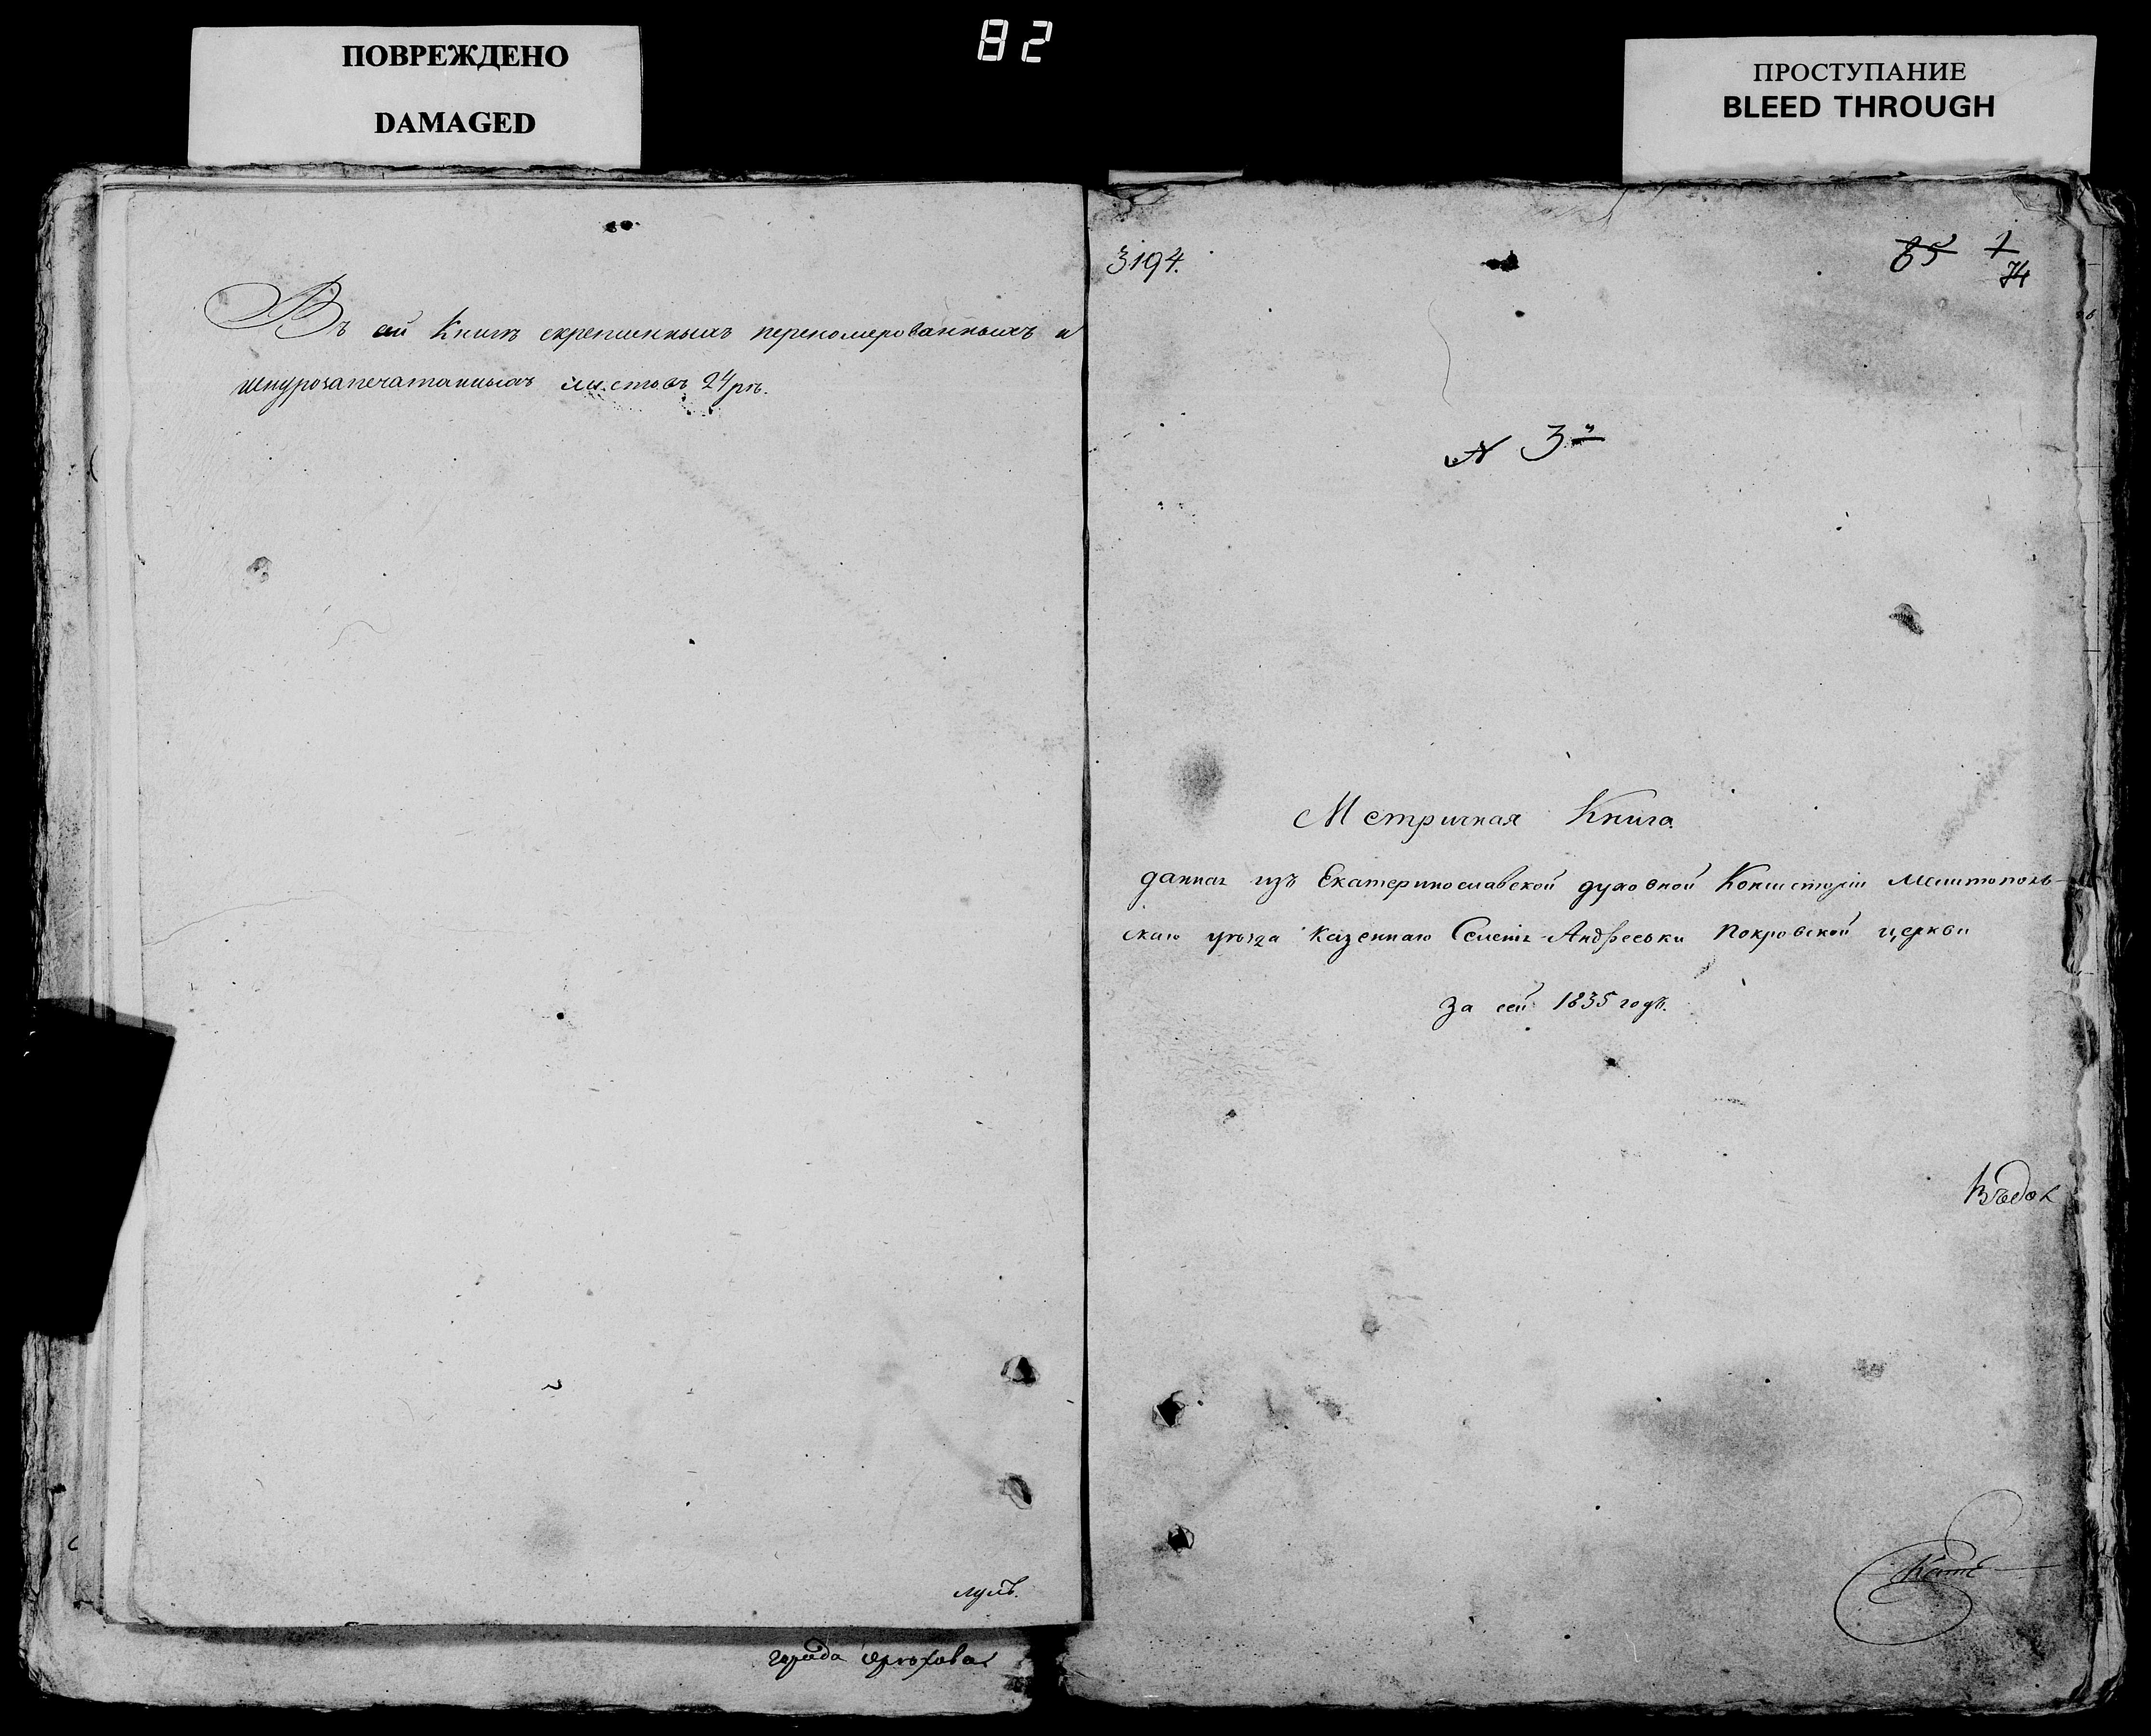 ПОВРЕЖДЕНО
DAMAGED
82
ПРОСТУПАНИЕ
BLEED THROUGH
Въ сей Книгѣ скрепленныхъ перекомерованныхъ и
шнурозапечатанныхъ листовъ 24ре.
города Орѣхова
3194.
85 1
74
№ 3й
Метричная Книга
данная изъ Екатеринославской духовной Консисторіи Мелитополь-
скаго уѣзда казеннаго Селенія Андреевки Покровской церкви
За сей 1835 годъ.